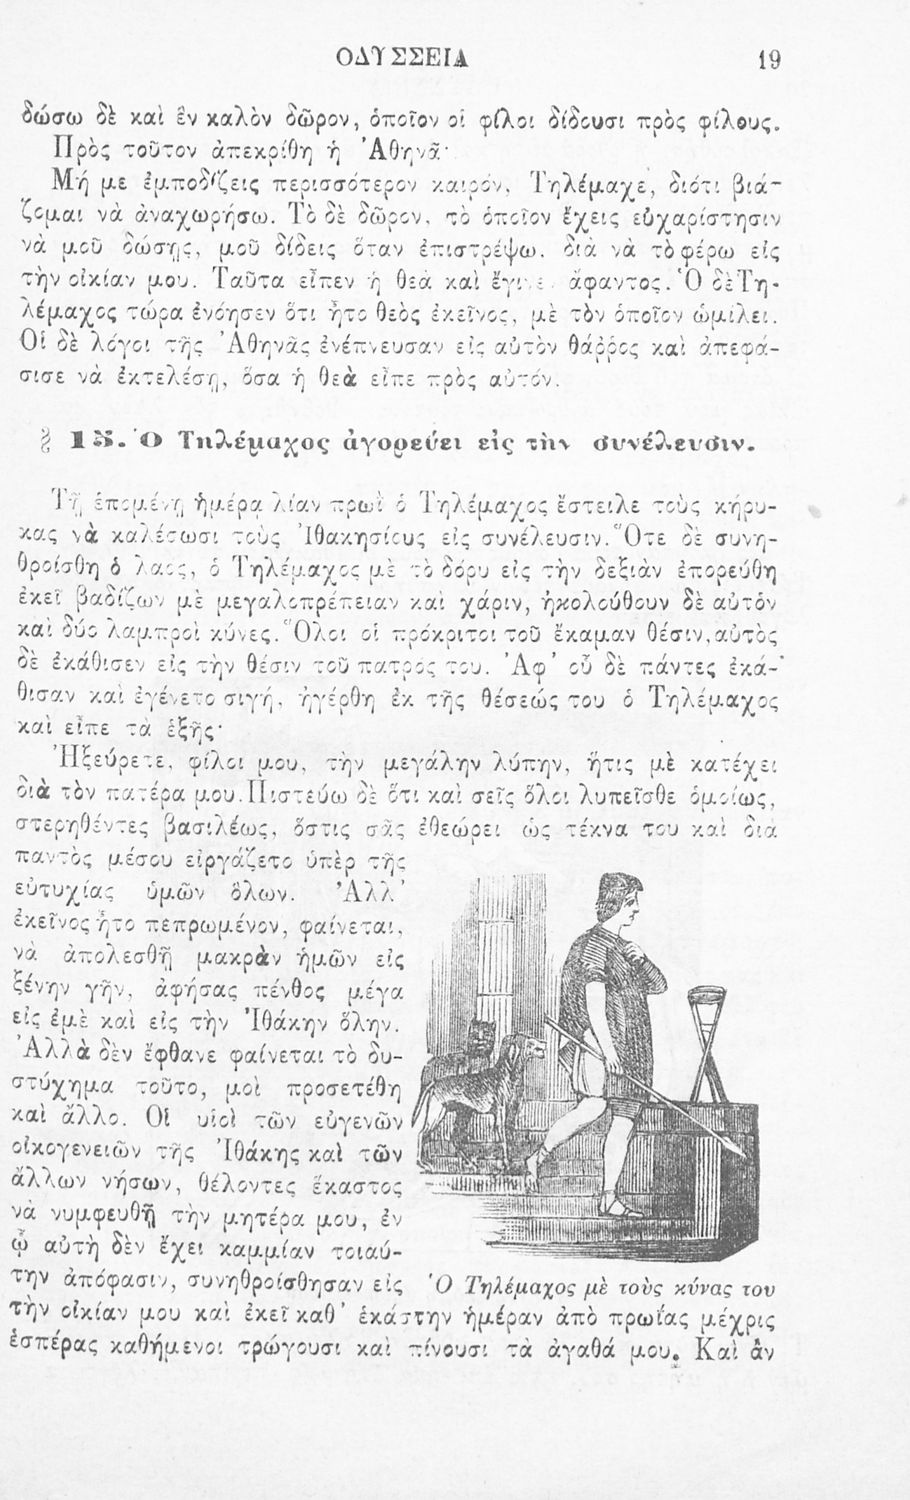 ΟΔΥΣΣΕΙΑ 19
δώσω δὲ καὶ ἓν καλὸν δῶρον, ὁποῖον οἱ φίλοι δίδουσι πρὸς φίλους.
Πρὸς τοῦτον ἀπεκρίθη ἡ Ἀθηνᾶ·
Μή με ἐμποδίζεις περισσότερον καιρόν, Τηλέμαχε, διότι βιά-
ζομαι νὰ ἀναχωρήσω. Τὸ δὲ δῶρον, τὸ ὁποῖον ἔχεις εὐχαρίστησιν
νὰ μοῦ δώσῃς, μοῦ δίδεις ὅταν ἐπιστρέψω, διὰ νὰ τὸ φέρω εἰς
τὴν οἰκίαν μου. Ταῦτα εἶπεν ἡ θεὰ καὶ ἔγινε ἄφαντος. Ὁ δὲ Τη-
λέμαχος τώρα ἐνόησεν ὅτι ἦτο θεὸς ἐκεῖνος, μὲ τὸν ὁποῖον ὡμίλει.
Οἱ δὲ λόγοι τῆς Ἀθηνᾶς ἐνέπνευσαν εἰς αὐτὸν θάῤῥος καὶ ἀπεφά-
σισε νὰ ἐκτελέσῃ, ὅσα ἡ θεὰ εἶπε πρὸς αὐτόν.
§ 15. Ὁ Τηλέμαχος ἀγορεύει εἰς τὴν συνέλευσιν.
Τῇ ἑπομένῃ ἡμέρᾳ λίαν πρωῒ ὁ Τηλέμαχος ἔστειλε τοὺς κήρυ-
κας νὰ καλέσωσι τοὺς Ἰθακησίους εἰς συνέλευσιν. Ὅτε δὲ συνη-
θροίσθη ὁ λαος, ὁ Τηλέμαχος μὲ τὸ δόρυ εἰς τὴν δεξιὰν ἐπορεύθη
ἐκεῖ βαδίζων μὲ μεγαλοπρέπειαν καὶ χάριν, ἠκολούθουν δὲ αὐτὸν
καὶ δύο λαμπροὶ κύνες. Ὅλοι οἱ πρόκριτοι τοῦ ἔκαμαν θέσιν, αὐτὸς
δὲ ἐκάθισεν εἰς τὴν θέσιν τοῦ πατρός του. Ἀφ' οὗ δὲ πάντες ἐκά-
θισαν καὶ ἐγένετο σιγή, ἠγέρθη ἐκ τῆς θέσεώς του ὁ Τηλέμαχος
καὶ εἶπε τὰ ἑξῆς·
Ἠξεύρετε, φίλοι μου, τὴν μεγάλην λύπην, ἥτις μὲ κατέχει
διὰ τὸν πατέρα μου. Πιστεύω δὲ ὅτι καὶ σεῖς ὅλοι λυπεῖσθε ὁμοίως,
στερηθέντες βασιλέως, ὅστις σᾶς ἐθεώρει ὡς τέκνα του καὶ διὰ
παντὸς μέσου εἰργάζετο ὑπὲρ τῆς
εὐτυχίας ὑμῶν ὅλων. Ἀλλ'
ἐκεῖνος ἦτο πεπρωμένον, φαίνεται,
νὰ ἀπολεσθῇ μακρὰν ἡμῶν εἰς
ξένην γῆν, ἀφήσας πένθος μέγα
εἰς ἐμὲ καὶ εἰς τὴν Ἰθάκην ὅλην.
Ἀλλὰ δὲν ἔφθανε φαίνεται τὸ δυ-
στύχημα τοῦτο, μοὶ προσετέθη
καὶ ἄλλο. Οἱ υἱοὶ τῶν εὐγενῶν
οἰκογενειῶν τῆς Ἰθάκης καὶ τῶν
ἄλλων νήσων, θέλοντες ἕκαστος
νὰ νυμφευθῇ τὴν μητέρα μου, ἐν
ᾧ αὐτὴ δὲν ἔχει καμμίαν τοιαύ-
την ἀπόφασιν, συνηθροίσθησαν εἰς
Ὁ Τηλέμαχος μὲ τοὺς κύνας του
τὴν οἰκίαν μου καὶ ἐκεῖ καθ' ἑκάστην ἡμέραν ἀπὸ πρωΐας μέχρις
ἑσπέρας καθήμενοι τρώγουσι καὶ πίνουσι τὰ ἀγαθά μου. Καὶ ἂν